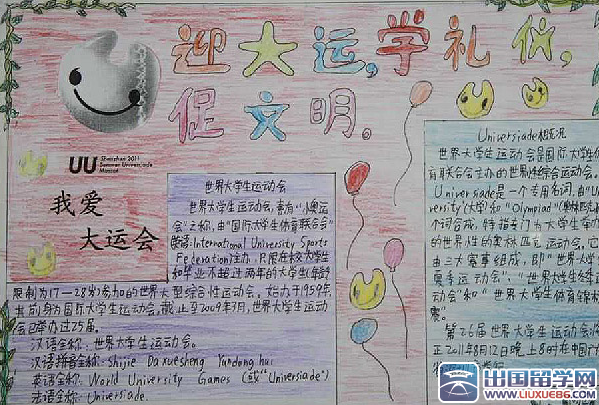 迎大运,学礼仪,
促文明。
UU Shenzhen 2011
Summer Universiade
Mascot
我爱
大运会
世界大学生运动会
世界大学生运动会,素有"小奥运
会"之称,由"国际大学生体育联合会"
(英语:International University Sports
Federation)主办,只限在校大学生
和毕业不超过两年的大学生(年龄
限制为17—28岁)参加的世界大型综合性运动会。始办于1959年,
其前身为国际大学生运动会。截止至2009年7月,世界大学生运动
会已举办过25届。
汉语全称:世界大学生运动会。
汉语拼音全称:Shijie Daxuesheng Yundong hui
英语全称:World University Games (或"Universiade")
法语全称:Universiade.
Universiade概况
世界大学生运动会是国际大学生体
育联合会主办的世界综合运动会。
Universiade是一个专用名词,由"Un
versity"(大学)和"Olympiad"(奥林匹克
个词合成,特指专门为大学生举办
的世界性的奥林匹克运动会,它
由三大赛事组成,即"世界大学生
夏季运动会"、"世界大学生冬季运
动会"和"世界大学生体育锦标
赛。
第26届世界大学生运动会
正2011年8月12日晚上8时在中国
出国留学网
www.liuxue86.com